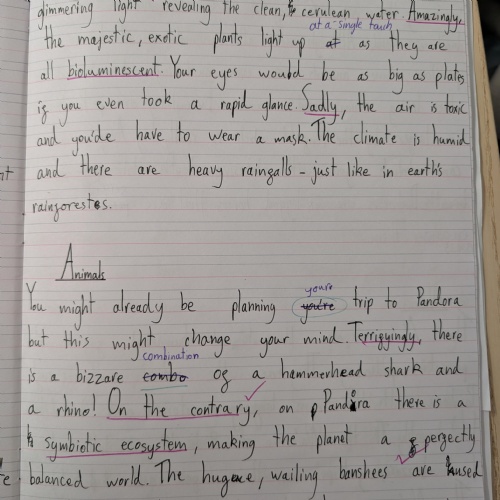 glimmering light revealing the clean, cerulean water. Amazingly,
at a single touch
the majestic, exotic plants light up at as they are
all bioluminescent. Your eyes would be as big as plates
if you even took a rapid glance. Sadly, the air is toxic
and you'de have to wear a mask. The climate is humid
and there are heavy raingalls - just like in earth's
rainforests.
Animals
youre
You might already be planning you're trip to Pandora
but this might change your mind. Terrifyingly, there
combination
is a bizzare combo of a hammerhead shark and
a rhino! On the contrary, on Pandora there is a
symbiotic ecosystem, making the planet a perfectly
balanced world. The huge, wailing banshees are used